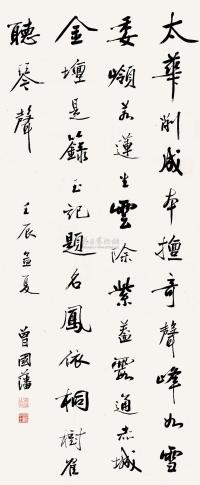 太華削成本擅奇聲峰如雪
委嶺若蓮生雲除紫蓋霞通赤城
金壇是籙玉記題名鳳依桐樹雀
聽琴聲
壬辰孟夏
曾國藩